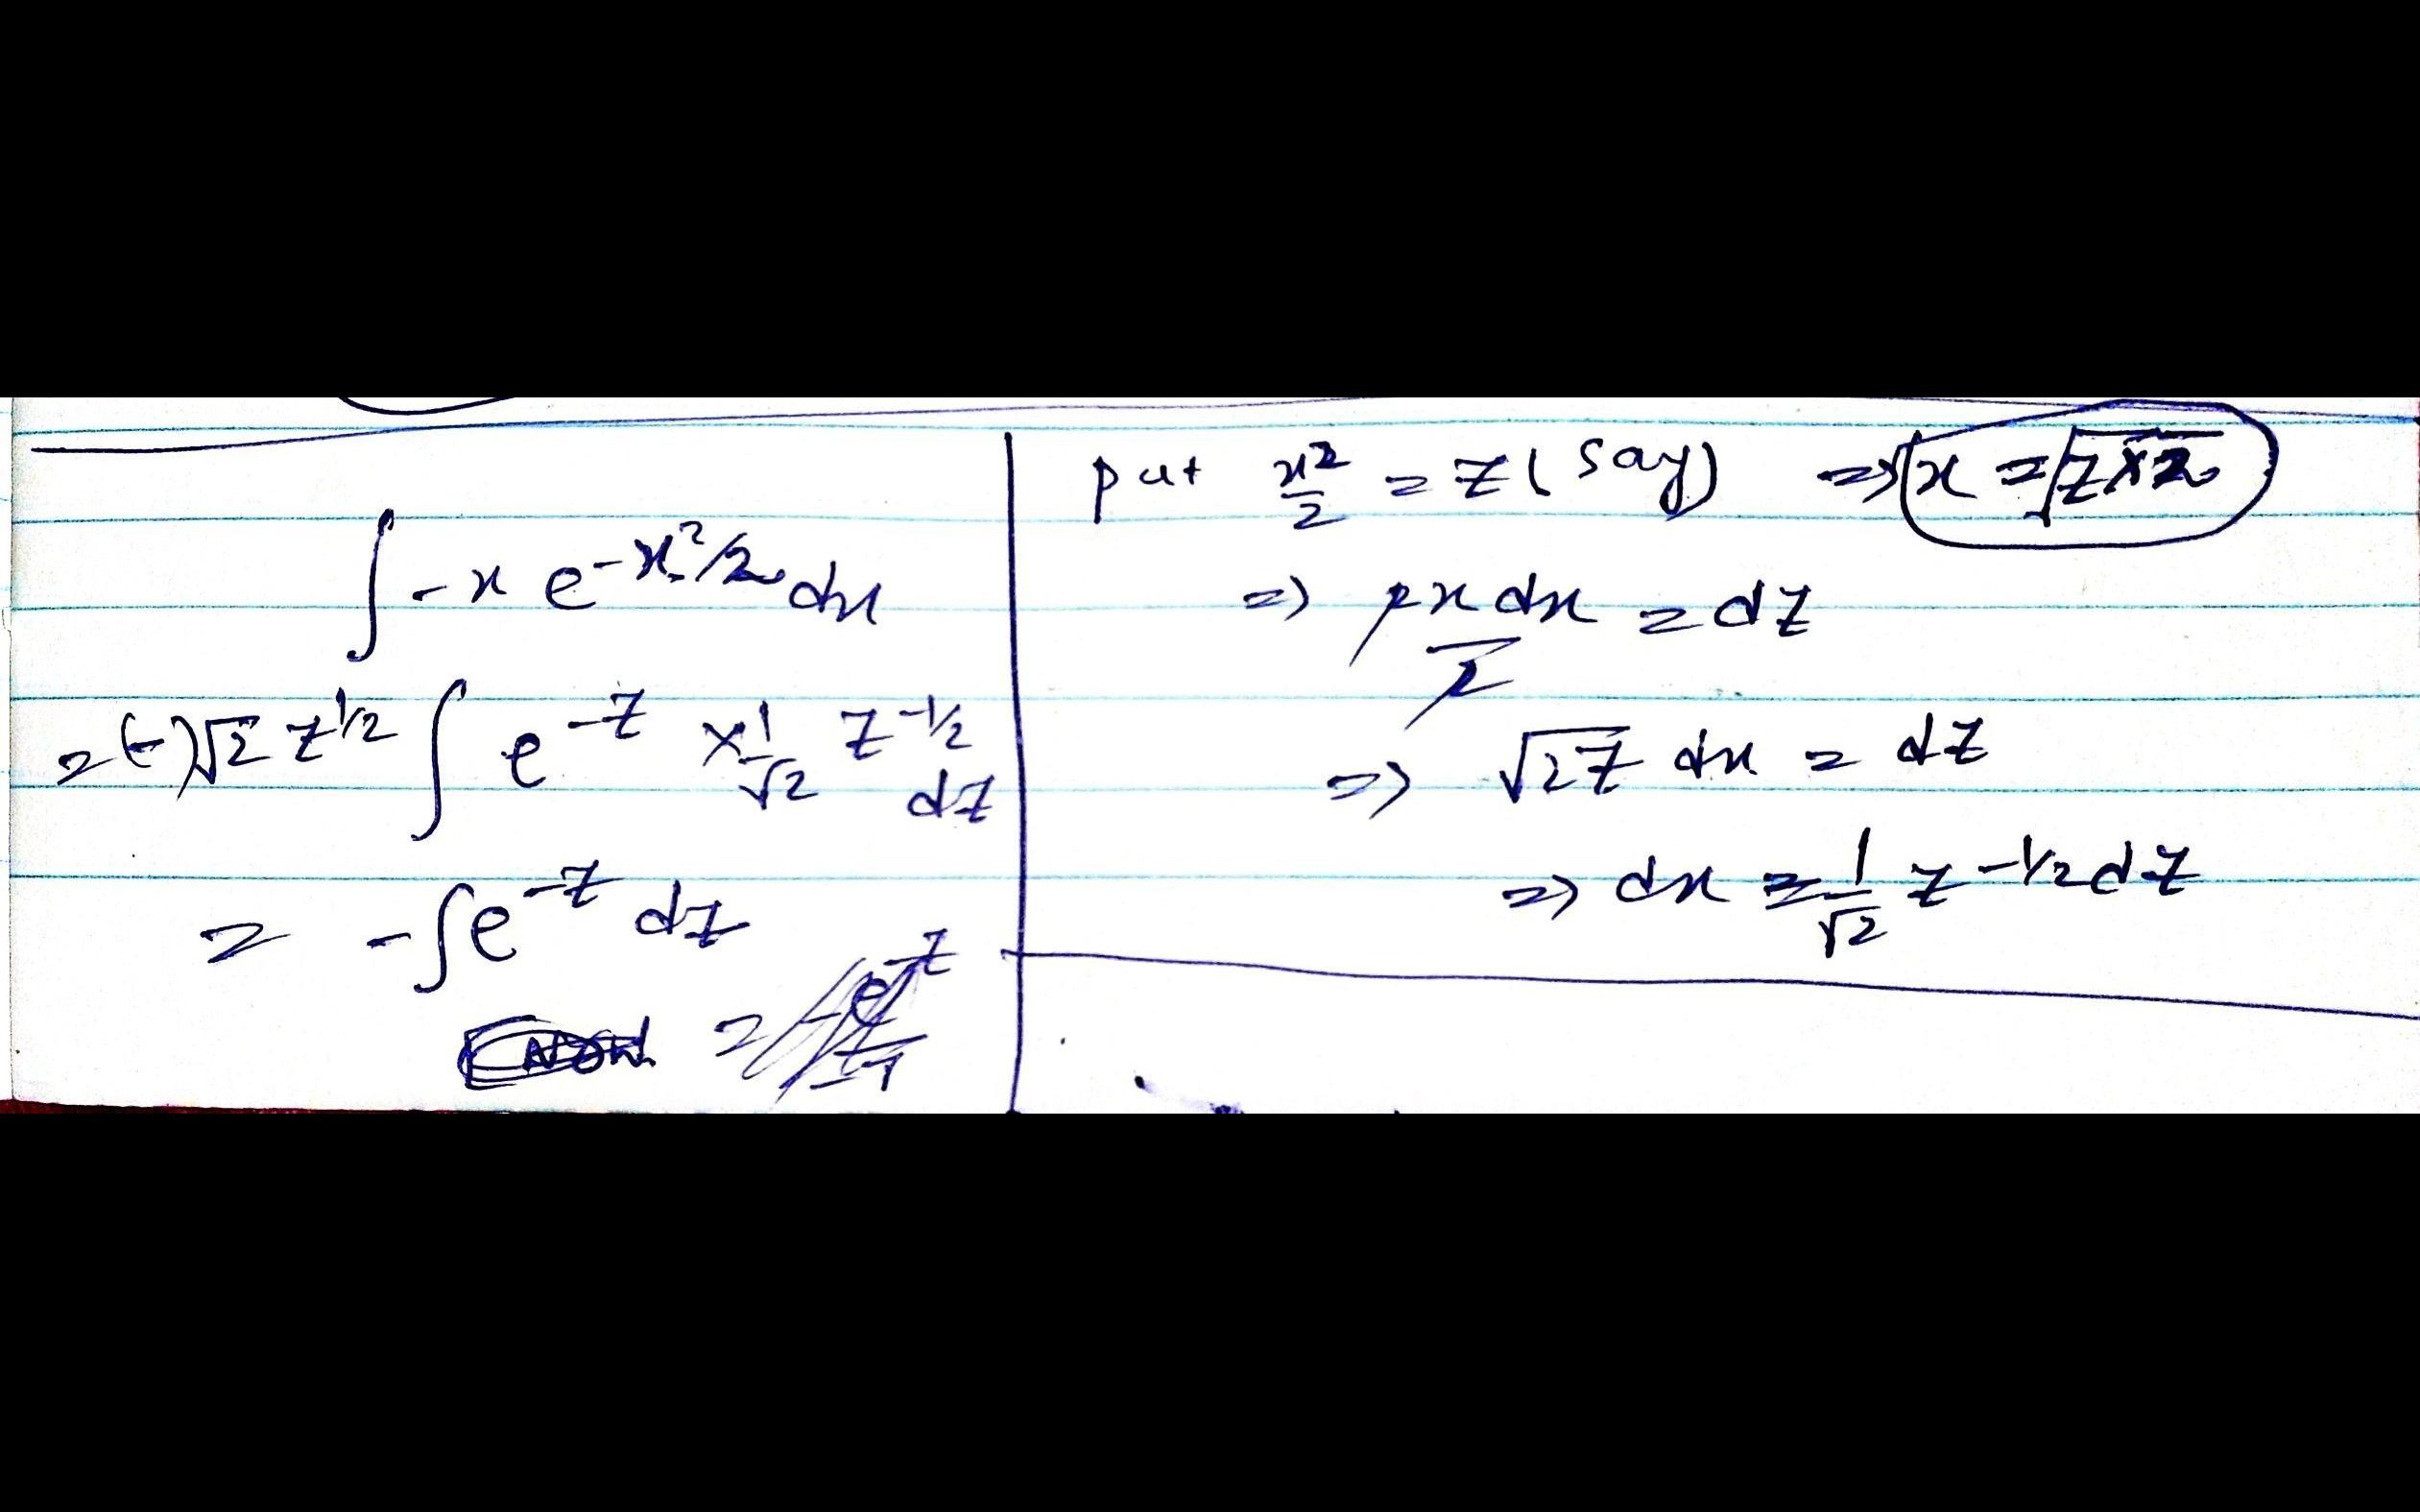 ∫ -x e^{-x²/2} dx
= (-)√2 z^{1/2} ∫ e^{-z} × 1/√2 z^{-1/2} dz
= -∫ e^{-z} dz
put x²/2 = z (say) ⇒ x = √(z×2)
⇒ 2x dx / 2 = dz
⇒ √2z dx = dz
⇒ dx = 1/√2 z^{-1/2} dz